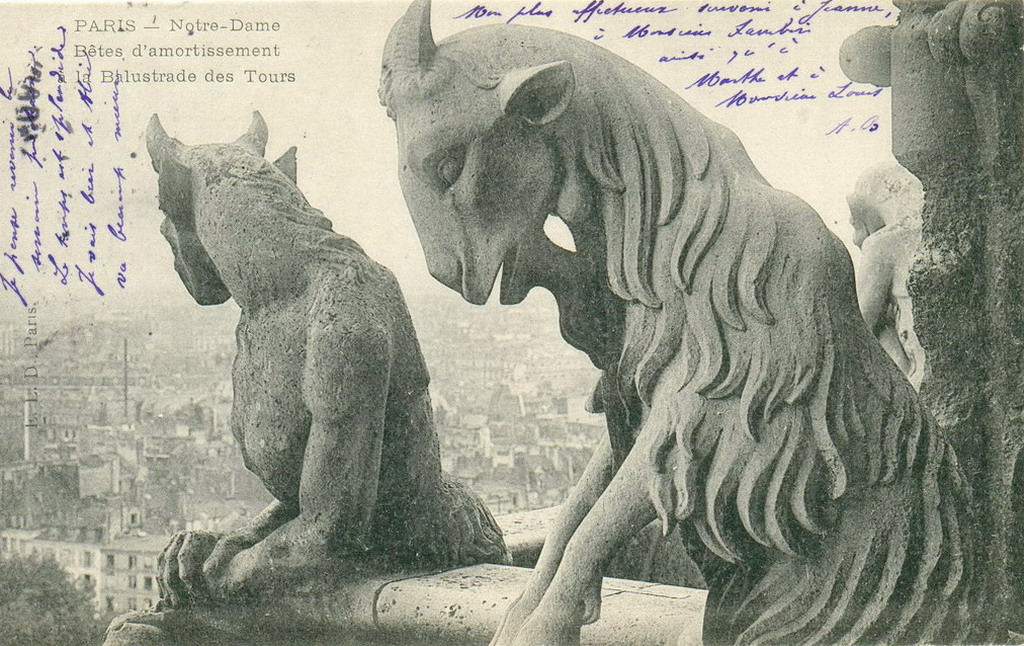 PARIS — Notre-Dame
Bêtes d'amortissement
la Balustrade des Tours
Mon plus affectueux souvenir à Jeanne,
à Monsieur
ainsi qu'à
Marthe et à
Monsieur Louis
A. B
Je pense revenir le
Le temps est splendide
Je vais bien et
va beaucoup mieux
L. D. Paris